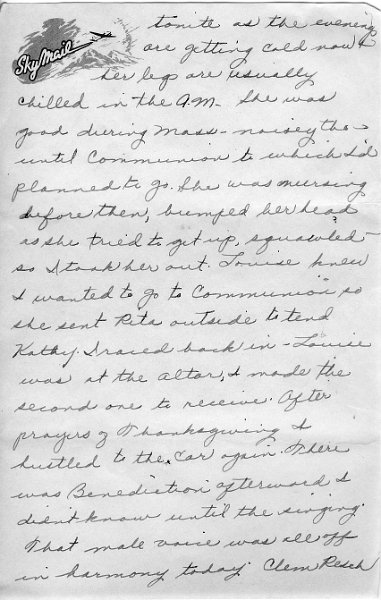 Sky Mail
tonite as the evenings
are getting cold now &
her legs are usually
chilled in the A.M. She was
good during Mass - noisey tho -
until Communion to which I'd
planned to go. She was nursing
before then, bumped her head
as she tried to get up, squawled -
so I took her out. Louise knew
I wanted to go to Communion so
she sent Rita outside to tend
Kathy. I raced back in - Louise
was at the altar, I made the
second one to receive. After
prayers of Thanksgiving I
hustled to the car again. There
was Benediction afterward I
didn't know until the singing.
That male voice was all off
in harmony today. Clem Resch